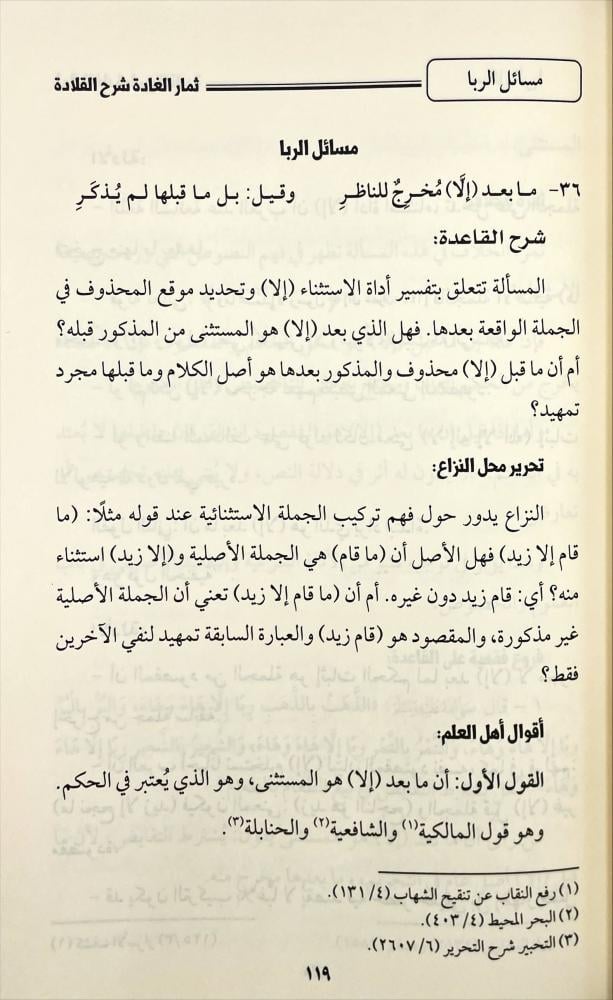 مسائل الربا
ثمار الغادة شرح القلادة
مسائل الربا
٣٦- ما بعد (إلَّا) مُخرِجٌ للناظر وقيل: بل ما قبلها لم يُذكَرِ
شرح القاعدة:
المسألة تتعلق بتفسير أداة الاستثناء (إلا) وتحديد موقع المحذوف في
الجملة الواقعة بعدها. فهل الذي بعد (إلا) هو المستثنى من المذكور قبله؟
أم أن ما قبل (إلا) محذوف والمذكور بعدها هو أصل الكلام وما قبلها مجرد
تمهيد؟
تحرير محل النزاع:
النزاع يدور حول فهم تركيب الجملة الاستثنائية عند قوله مثلًا: (ما
قام إلا زيد) فهل الأصل أن (ما قام) هي الجملة الأصلية و(إلا زيد) استثناء
منه؟ أي: قام زيد دون غيره. أم أن (ما قام إلا زيد) تعني أن الجملة الأصلية
غير مذكورة، والمقصود هو (قام زيد) والعبارة السابقة تمهيد لنفي الآخرين
فقط؟
أقوال أهل العلم:
القول الأول: أن ما بعد (إلا) هو المستثنى، وهو الذي يُعتبر في الحكم.
وهو قول المالكية(١) والشافعية(٢) والحنابلة(٣).
(١) رفع النقاب عن تنقيح الشهاب (٤/ ١٣١).
(٢) البحر المحيط (٤/ ٤٠٣).
(٣) التحبير شرح التحرير (٦/ ٢٦٠٧).
١١٩